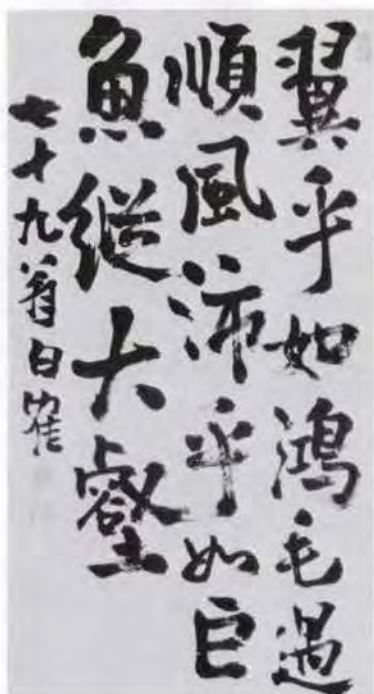 翼乎如鴻毛遇
順風沛乎如巨
魚縦大壑
七十九翁白寉